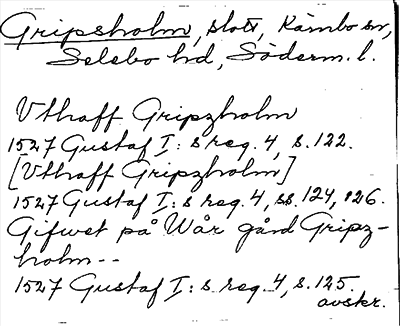 Gripsholm, slott, Kärnbo sn,
Selebo hd, Söderm. l.
Vthaff Gripzholm
1527 Gustaf I: s reg. 4, s. 122.
[Vthaff Gripzholm]
1527 Gustaf I: s reg. 4, ss. 124, 126.
Gifwet på Wår gård Gripz-
holm--
1527 Gustaf I: s reg. 4, s. 125.
avskr.